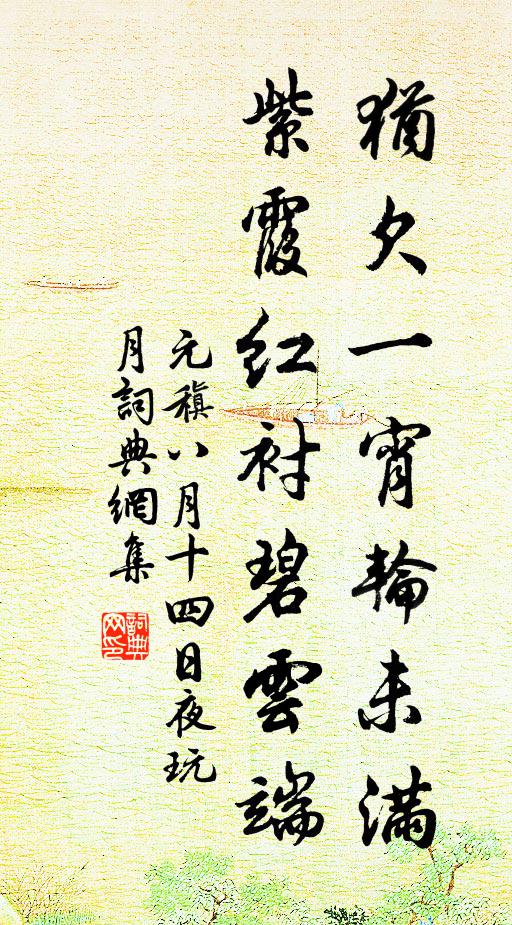 猶欠一宵輪未滿
紫霞紅衬碧雲端
元稹八月十四日夜玩
月詞典網集
詞典网印